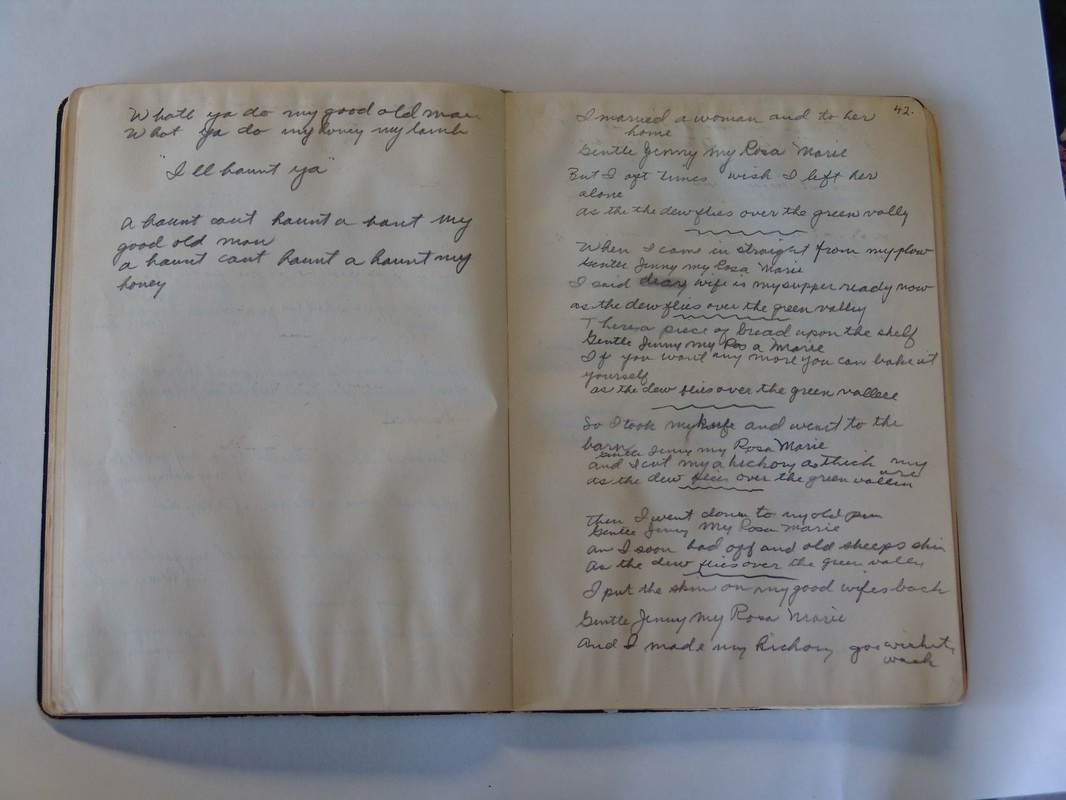 Whatll ya do my good old man
What ya do my honey my lamb
"I ll haunt ya"
A haunt cant haunt a hant my
good old man
a haunt cant haunt a haunt my
honey
42.
I married a woman and to her
home
Gentle Jenny my Rosa Marie
But I oft times wish I left her
alone
as the the dew flies over the green vally
When I came in straight from my plow
Gentle Jenny my Rosa Marie
I said deary wife is my supper ready now
as the dew flies over the green valley
Theres a piece of bread upon the shelf
Gentle Jenny my Rosa Marie
If you want any more you can bake it
yourself
as the dew flies over the green vallee
So I took my knife and went to the
barn
Gentle Jenny my Rosa Marie
and I cut my a hickory as thick my
arm
as the dew flies over the green
Then I went down to my old pen
Gentle Jenny My Rosa Marie
an I soon had off and old sheeps skin
As the dew flies over the green valley
I put the skin on my good wifes back
Gentle Jenny My Rosa Marie
And I made my hickory go
wack